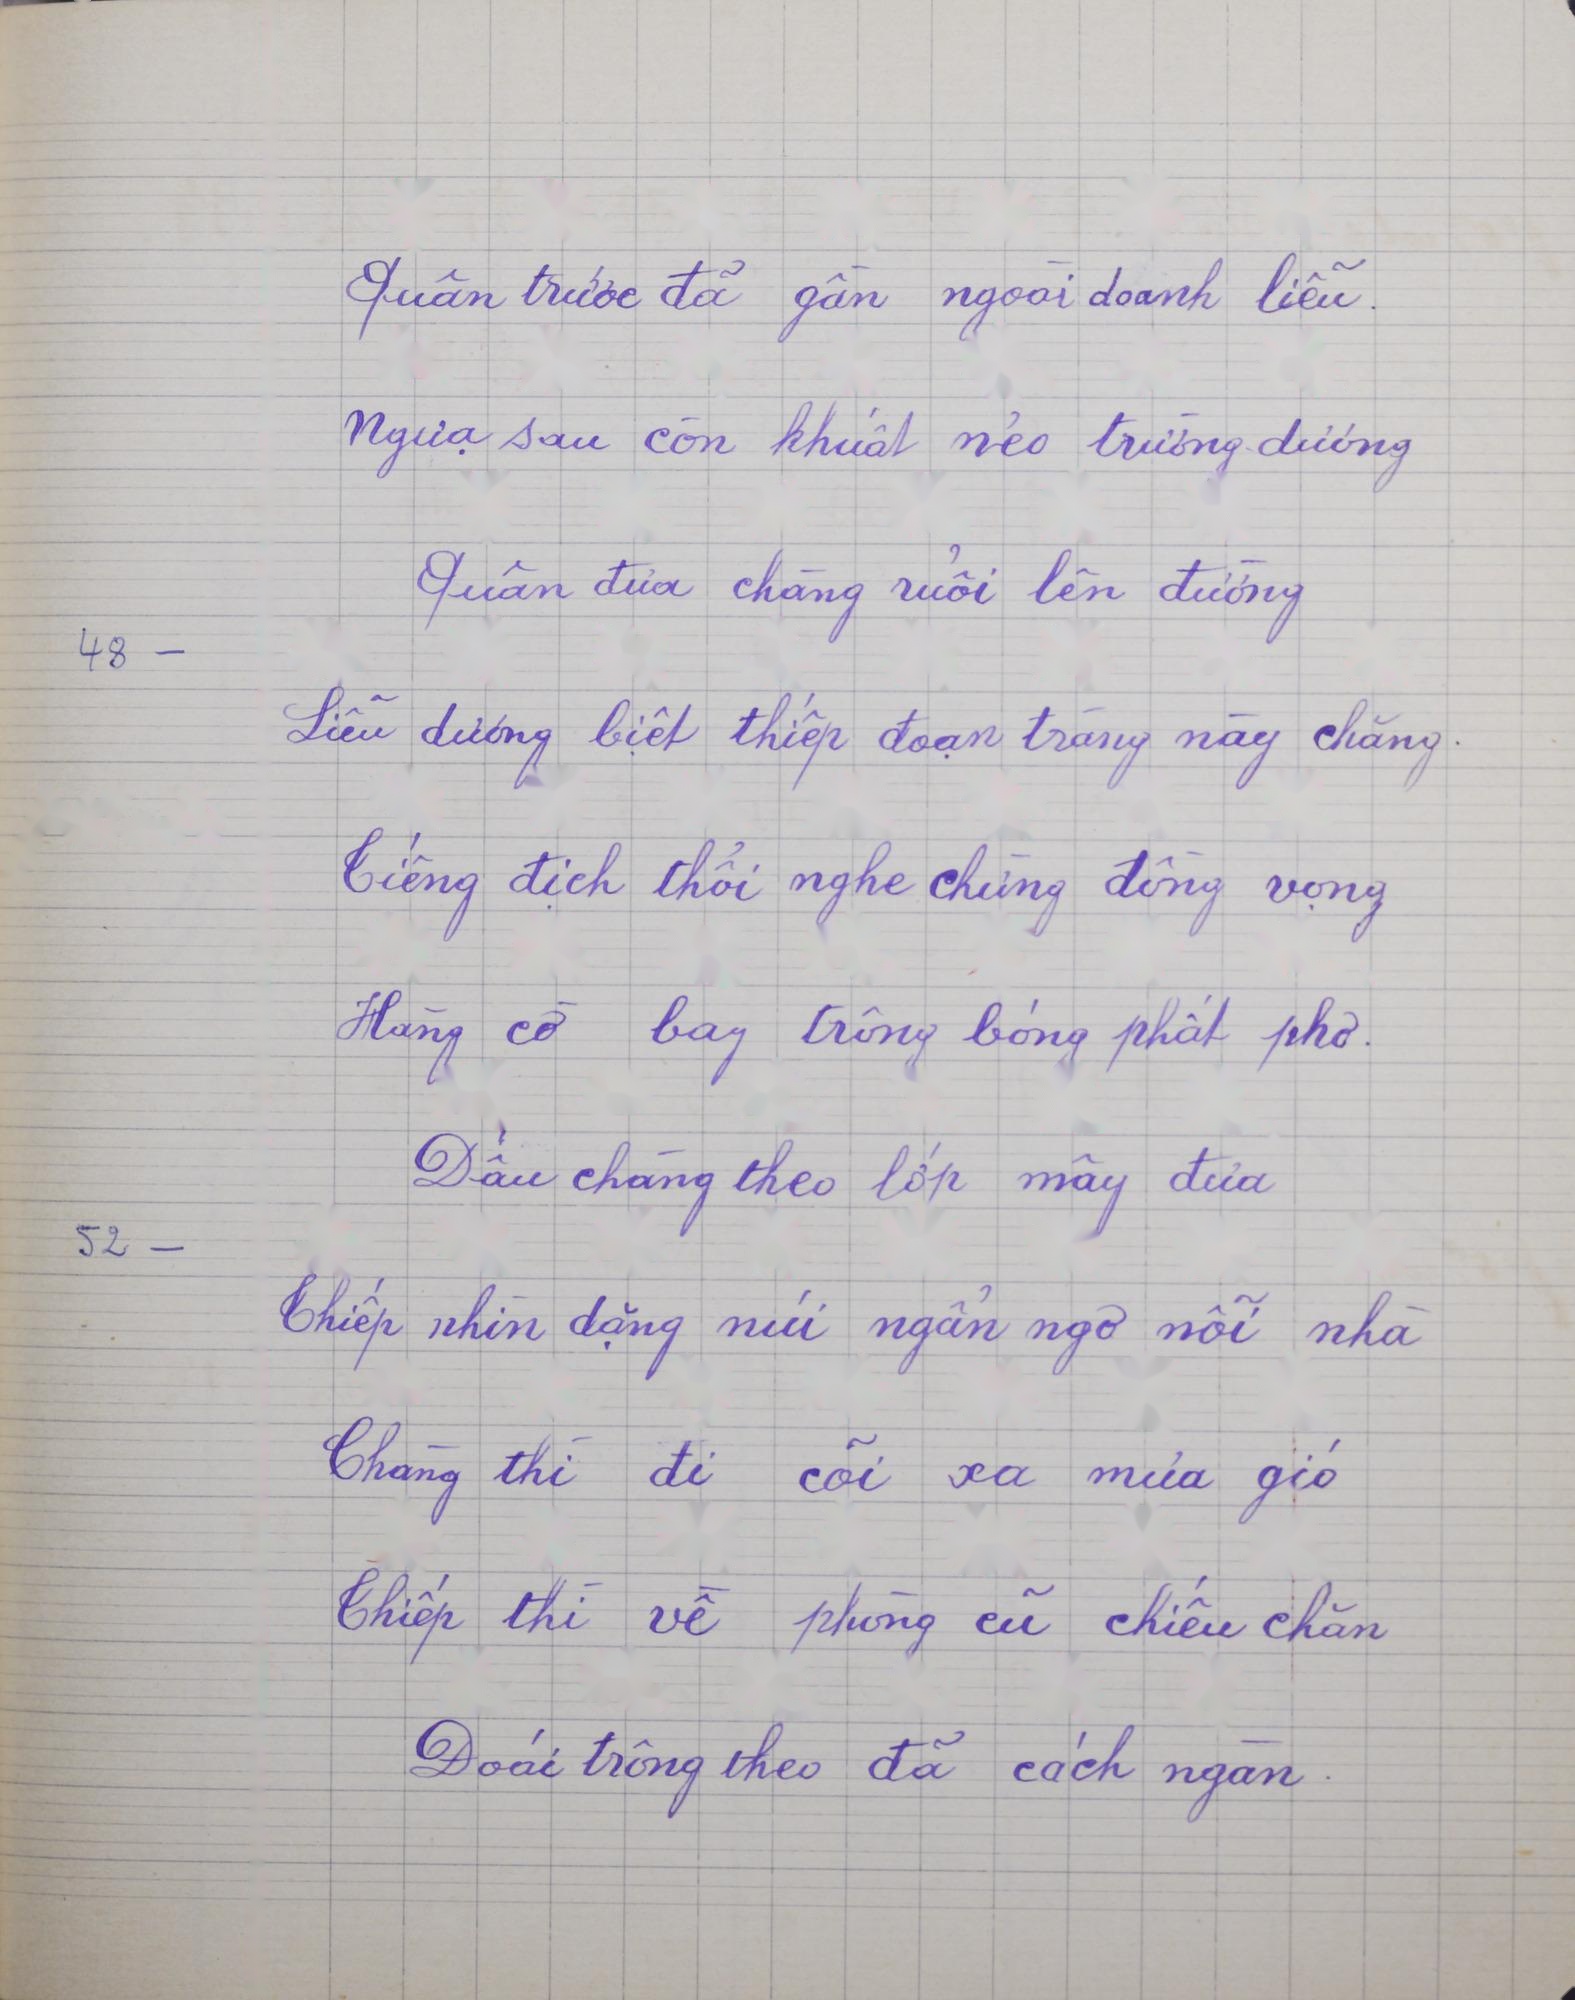 Quân trước đã gần ngoài doanh liễu.
Ngựa sau còn khuất nẻo trường dương
Quân đưa chàng ruổi lên đường
48 –
Liễu dương biệt thiếp đoạn tràng này chăng.
Tiếng địch thổi nghe chừng đồng vọng
Hàng cờ bay trông bóng phất phơ.
Dấu chàng theo lớp mây đưa
52 –
Thiếp nhìn dặng núi ngẩn ngơ nỗi nhà
Chàng thì đi cõi xa mưa gió
Thiếp thì về phòng cũ chiếu chăn
Doái trông theo đã cách ngăn.